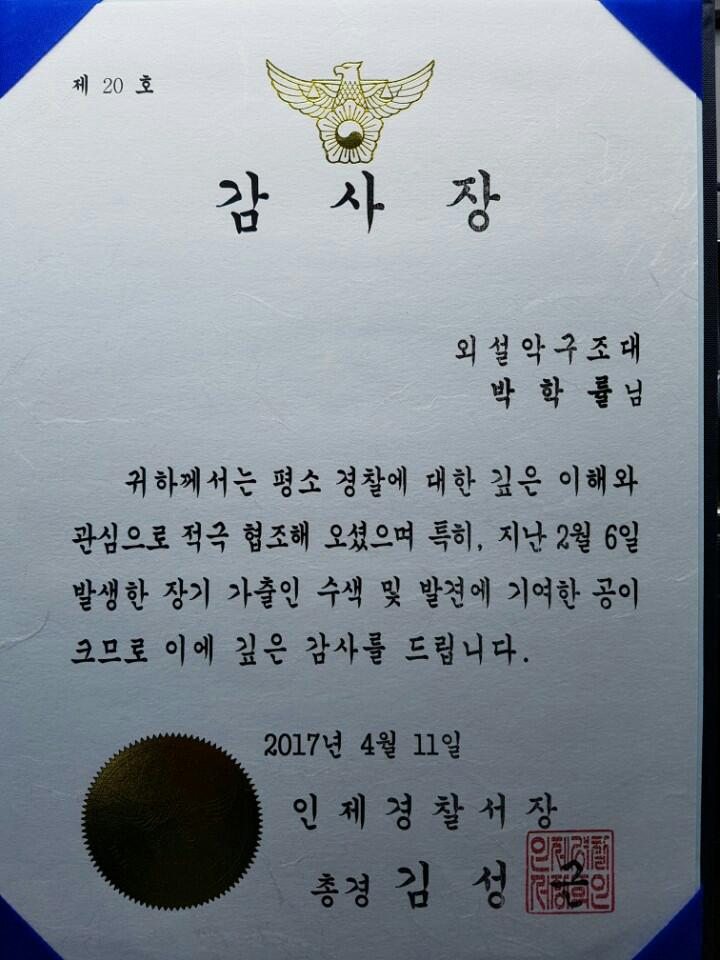 제 20 호
감 사 장
외설악구조대
박 학 률님
귀하께서는 평소 경찰에 대한 깊은 이해와
관심으로 적극 협조해 오셨으며 특히, 지난 2월 6일
발생한 장기 가출인 수색 및 발견에 기여한 공이
크므로 이에 깊은 감사를 드립니다.
2017년 4월 11일
인제경찰서장
총경 김 성 근
인제경찰
서장의인